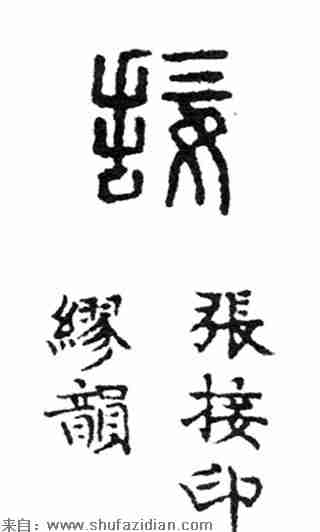 接
張接印
繆韻
来自：www.shufazidian.com